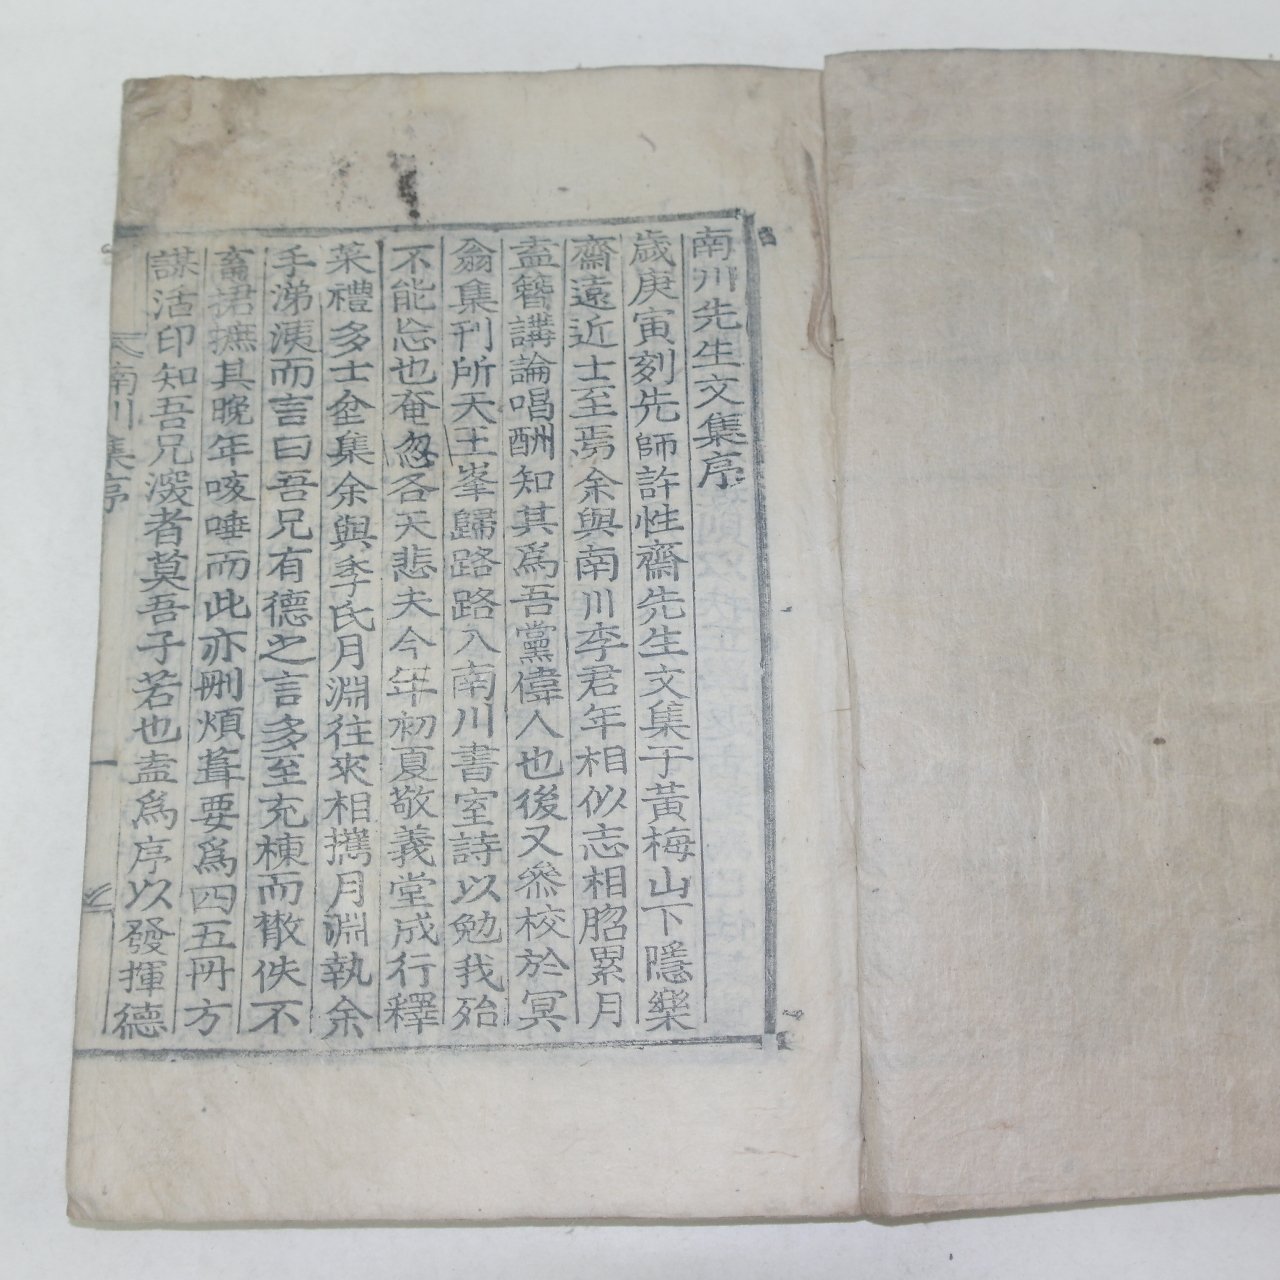 南川先生文集序
歲庚寅刻先師許性齋先生文集于黃梅山下隱樂
齋遠近士至焉余與南川李君年相似志相照累月
盍簪講論唱酬知其爲吾黨偉人也後又參校於冥
翁集刊所天王峯歸路路入南川書室詩以勉我殆
不能忘也奄忽各天悲夫今年初夏敬義堂成行釋
菜禮多士坌集余與季氏月淵往來相攜月淵執余
手涕洟而言曰吾兄有德之言多至充棟而散佚不
畜捃摭其晚年咳唾而此亦刪煩葺要爲四五冊方
謀活印知吾兄深者莫吾子若也盍爲序以發揮德
南川集序
一